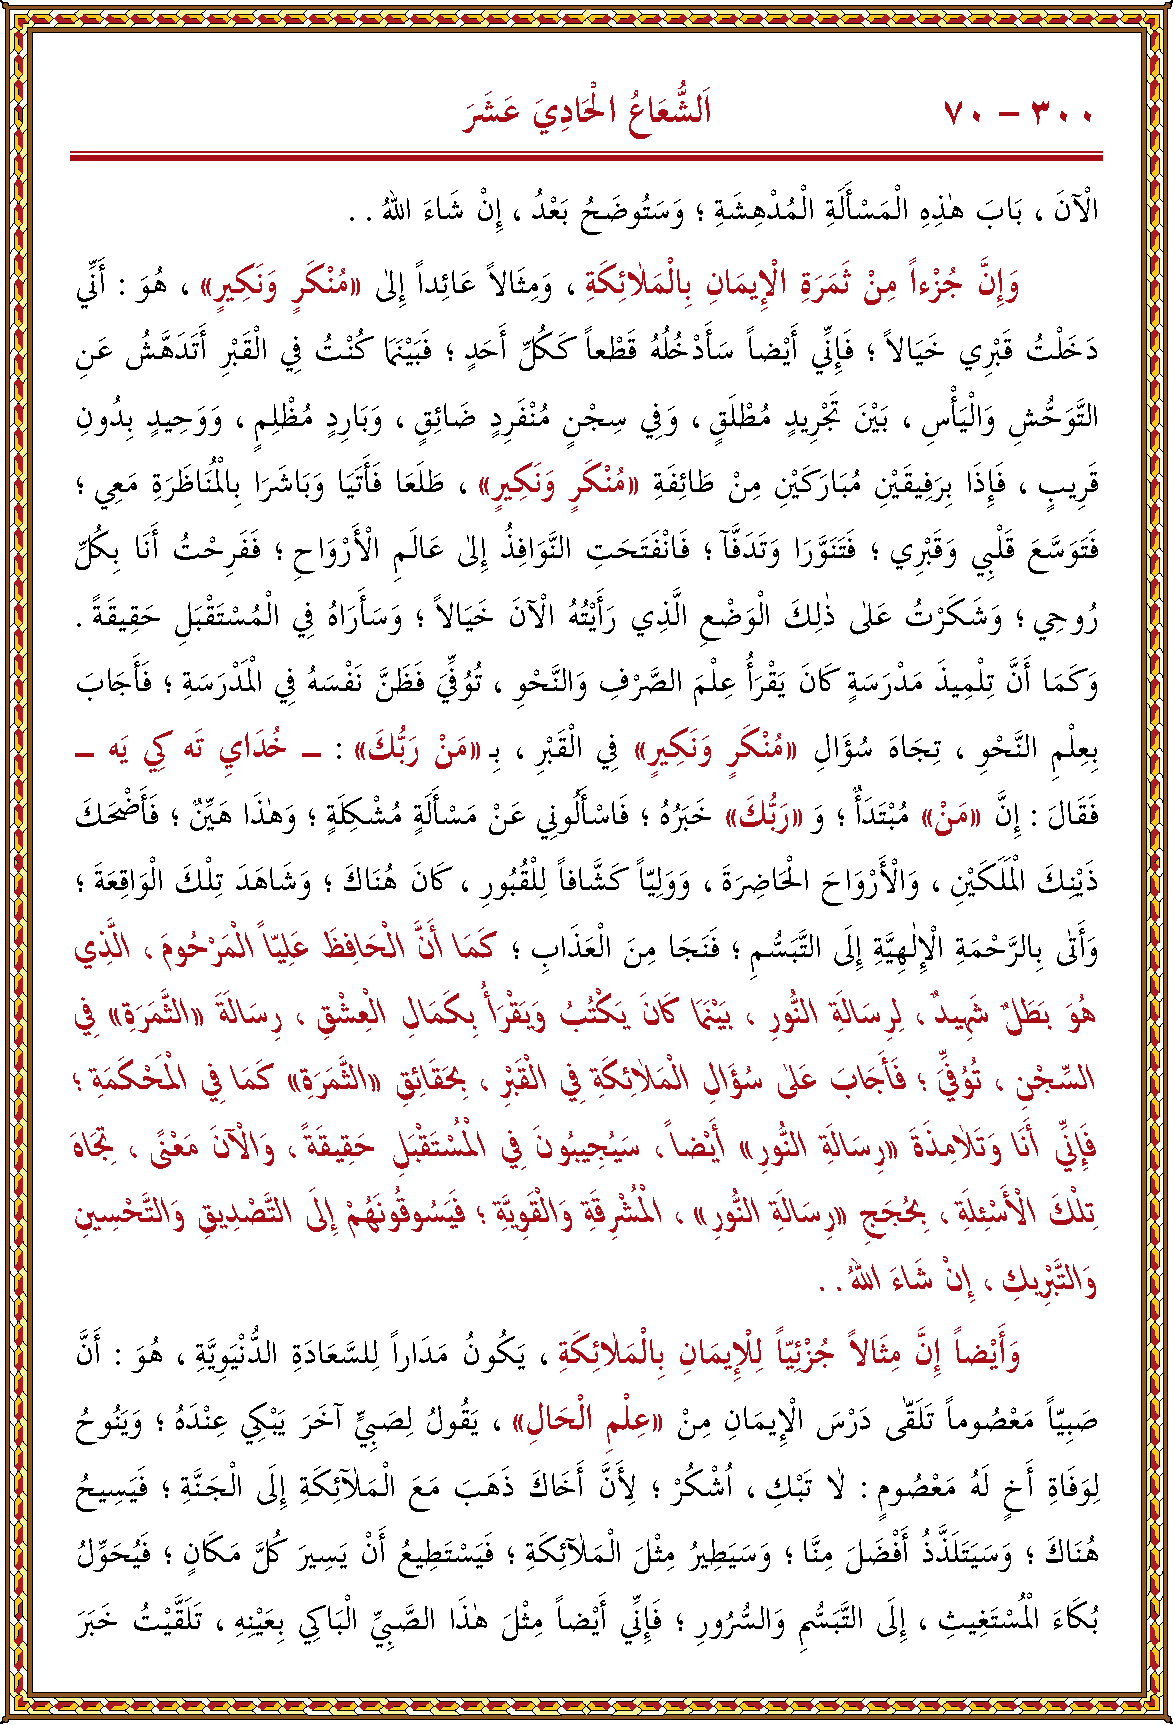 ٣٠٠ – ٧٠ اَلشُّعَاعُ الْحَادِيَ عَشَرَ
الْآنَ ، بَابَ هٰذِهِ الْمَسْأَلَةِ الْمُدْهِشَةِ ؛ وَسَتُوضَحُ بَعْدُ ، إِنْ شَاءَ اللهُ . .
وَإِنَّ جُزْءاً مِنْ ثَمَرَةِ الْإِيمَانِ بِالْمَلٰائِكَةِ ، وَمِثَالاً عَائِداً إِلىٰ «مُنْكَرٍ وَنَكِيرٍ» ، هُوَ : أَنِّي
دَخَلْتُ قَبْرِي خَيَالاً ؛ فَإِنِّي أَيْضاً سَأَدْخُلُهُ قَطْعاً كَكُلِّ أَحَدٍ ؛ فَبَيْنَمَا كُنْتُ فِي الْقَبْرِ أَتَدَهَّشُ عَنِ
التَّوَحُّشِ وَالْيَأْسِ ، بَيْنَ تَجْرِيدٍ مُطْلَقٍ ، وَفِي سِجْنٍ مُنْفَرِدٍ ضَائِقٍ ، وَبَارِدٍ مُظْلِمٍ ، وَوَحِيدٍ بِدُونِ
قَرِيبٍ ، فَإِذَا بِرَفِيقَيْنِ مُبَارَكَيْنِ مِنْ طَائِفَةِ «مُنْكَرٍ وَنَكِيرٍ» ، طَلَعَا فَأَتَيَا وَبَاشَرَا بِالْمُنَاظَرَةِ مَعِي ؛
فَتَوَسَّعَ قَلْبِي وَقَبْرِي ؛ فَتَنَوَّرَا وَتَدَفَّآ ؛ فَانْفَتَحَتِ النَّوَافِذُ إِلىٰ عَالَمِ الْأَرْوَاحِ ؛ فَفَرِحْتُ أَنَا بِكُلِّ
رُوحِي ؛ وَشَكَرْتُ عَلىٰ ذٰلِكَ الْوَضْعِ الَّذِي رَأَيْتُهُ الْآنَ خَيَالاً ؛ وَسَأَرَاهُ فِي الْمُسْتَقْبَلِ حَقِيقَةً .
وَكَمَا أَنَّ تِلْمِيذَ مَدْرَسَةٍ كَانَ يَقْرَأُ عِلْمَ الصَّرْفِ وَالنَّحْوِ ، تُوُفِّيَ فَظَنَّ نَفْسَهُ فِي الْمَدْرَسَةِ ؛ فَأَجَابَ
بِعِلْمِ النَّحْوِ ، تِجَاهَ سُؤَالِ «مُنْكَرٍ وَنَكِيرٍ» فِي الْقَبْرِ ، بِـ «مَنْ رَبُّكَ» : ـ خُدَايِ تَه كِي يَه ـ
فَقَالَ : إِنَّ «مَنْ» مُبْتَدَأٌ ؛ وَ «رَبُّكَ» خَبَرُهُ ؛ فَاسْأَلُونِي عَنْ مَسْأَلَةٍ مُشْكِلَةٍ ؛ وَهٰذَا هَيِّنٌ ؛ فَأَضْحَكَ
ذَيْنِكَ الْمَلَكَيْنِ ، وَالْأَرْوَاحَ الْحَاضِرَةَ ، وَوَلِيّاً كَشَّافاً لِلْقُبُورِ ، كَانَ هُنَاكَ ؛ وَشَاهَدَ تِلْكَ الْوَاقِعَةَ ؛
وَأَتىٰ بِالرَّحْمَةِ الْإِلٰهِيَّةِ إِلَى التَّبَسُّمِ ؛ فَنَجَا مِنَ الْعَذَابِ ؛ كَمَا أَنَّ الْحَافِظَ عَلِيّاً الْمَرْحُومَ ، الَّذِي
هُوَ بَطَلٌ شَهِيدٌ ، لِرِسَالَةِ النُّورِ ، بَيْنَمَا كَانَ يَكْتُبُ وَيَقْرَأُ بِكَمَالِ الْعِشْقِ ، رِسَالَةَ «الثَّمَرَةِ» فِي
السِّجْنِ ، تُوُفِّيَ ؛ فَأَجَابَ عَلىٰ سُؤَالِ الْمَلاٰئِكَةِ فِي الْقَبْرِ ، بِحَقَائِقِ «الثَّمَرَةِ» كَمَا فِي الْمَحْكَمَةِ ؛
فَإِنِّي أَنَا وَتَلاٰمِذَةَ «رِسَالَةِ النُّورِ» أَيْضاً ، سَيُجِيبُونَ فِي الْمُسْتَقْبَلِ حَقِيقَةً ، وَالْآنَ مَعْنًى ، تِجَاهَ
تِلْكَ الْأَسْئِلَةِ ، بِحُجَجِ «رِسَالَةِ النُّورِ» ، الْمُشْرِقَةِ وَالْقَوِيَّةِ ؛ فَيَسُوقُونَهُمْ إِلَى التَّصْدِيقِ وَالتَّحْسِينِ
وَالتَّبْرِيكِ ، إِنْ شَاءَ اللهُ . .
وَأَيْضاً إِنَّ مِثَالاً جُزْئِيّاً لِلْإِيمَانِ بِالْمَلٰائِكَةِ ، يَكُونُ مَدَاراً لِلسَّعَادَةِ الدُّنْيَوِيَّةِ ، هُوَ : أَنَّ
صَبِيّاً مَعْصُوماً تَلَقّٰى دَرْسَ الْإِيمَانِ مِنْ «عِلْمِ الْحَالِ» ، يَقُولُ لِصَبِيٍّ آخَرَ يَبْكِي عِنْدَهُ ؛ وَيَنُوحُ
لِوَفَاةِ أَخٍ لَهُ مَعْصُومٍ : لاٰ تَبْكِ ، اُشْكُرْ ؛ لِأَنَّ أَخَاكَ ذَهَبَ مَعَ الْمَلٰآئِكَةِ إِلَى الْجَنَّةِ ؛ فَيَسِيحُ
هُنَاكَ ؛ وَسَيَتَلَذَّذُ أَفْضَلَ مِنَّا ؛ وَسَيَطِيرُ مِثْلَ الْمَلٰآئِكَةِ ؛ فَيَسْتَطِيعُ أَنْ يَسِيرَ كُلَّ مَكَانٍ ؛ فَيُحَوِّلُ
بُكَاءَ الْمُسْتَغِيثِ ، إِلَى التَّبَسُّمِ وَالسُّرُورِ ؛ فَإِنِّي أَيْضاً مِثْلَ هٰذَا الصَّبِيِّ الْبَاكِي بِعَيْنِهِ ، تَلَقَّيْتُ خَبَرَ